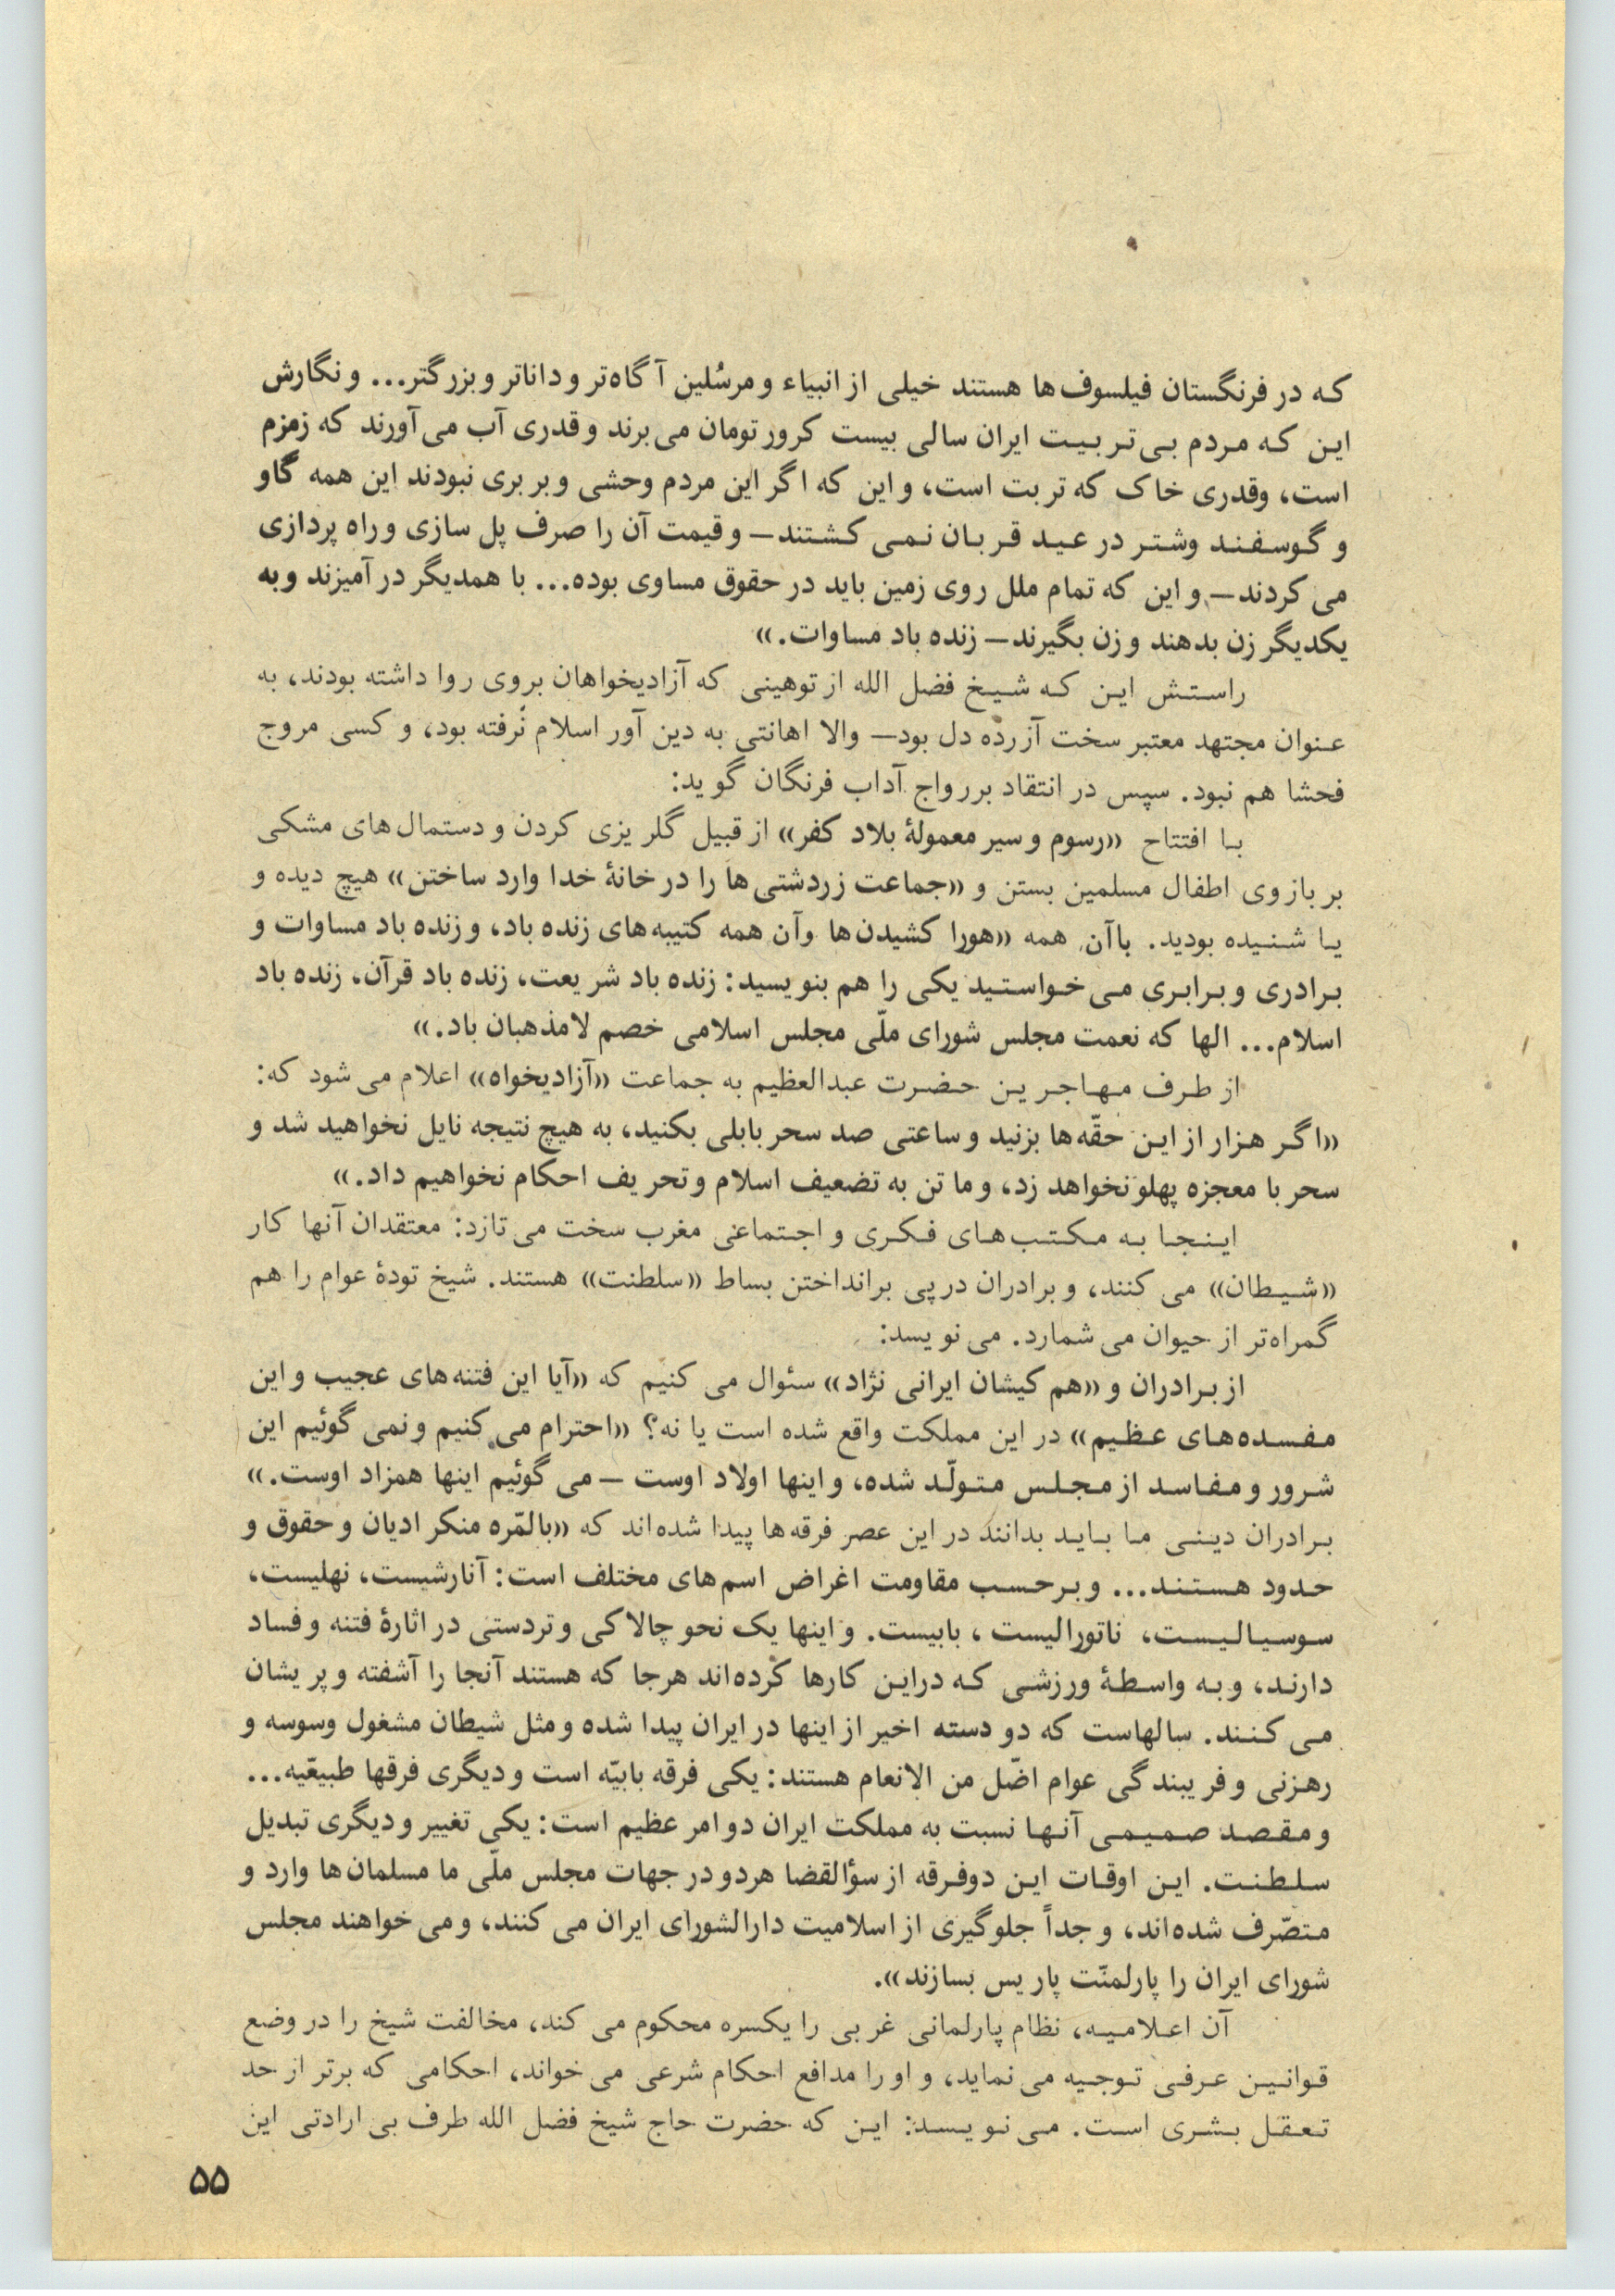 که در فرنگستان فیلسوف‌ها هستند خیلی از انبیاء و مرسُلین آگاه‌تر و داناتر و بزرگتر... و نگارش
این که مردم بی‌تربیت ایران سالی بیست کرور تومان می‌برند و قدری آب می‌آورند که زمزم
است، وقدری خاک که تربت است، و این که اگر این مردم وحشی و بربری نبودند این همه گاو
و گوسفند وشتر در عید قربان نمی کشتند— و قیمت آن را صرف پل سازی و راه پردازی
می کردند— و این که تمام ملل روی زمین باید در حقوق مساوی بوده... با همدیگر در آمیزند و به
یکدیگر زن بدهند و زن بگیرند— زنده باد مساوات.»
راستش این که شیخ فضل الله از توهینی که آزادیخواهان بروی روا داشته بودند، به
عنوان مجتهد معتبر سخت آزرده دل بود— والا اهانتی به دین آور اسلام نَرفته بود، و کسی مروج
فحشا هم نبود. سپس در انتقاد بررواج آداب فرنگان گوید:
با افتتاح «رسوم و سیر معمولهٔ بلاد کفر» از قبیل گلریزی کردن و دستمال‌های مشکی
بر بازوی اطفال مسلمین بستن و «جماعت زردشتی‌ها را در خانهٔ خدا وارد ساختن» هیچ دیده و
یا شنیده بودید. باآن همه «هورا کشیدن‌ها وآن همه کتیبه‌های زنده باد، و زنده باد مساوات و
برادری و برابری می‌خواستید یکی را هم بنویسید: زنده باد شریعت، زنده باد قرآن، زنده باد
اسلام... الها که نعمت مجلس شورای ملّی مجلس اسلامی خصم لامذهبان باد.»
از طرف مهاجرین حضرت عبدالعظیم به جماعت «آزادیخواه» اعلام می‌شود که:
«اگر هزار از این حقّه‌ها بزنید و ساعتی صد سحر بابلی بکنید، به هیچ نتیجه نایل نخواهید شد و
سحر با معجزه پهلو نخواهد زد، و ما تن به تضعیف اسلام و تحریف احکام نخواهیم داد.»
اینجا به مکتب‌های فکری و اجتماعی مغرب سخت می‌تازد: معتقدان آنها کار
«شیطان» می کنند، و برادران درپی برانداختن بساط «سلطنت» هستند. شیخ تودهٔ عوام را هم
گمراه‌تر از حیوان می‌شمارد. می‌نویسد:
از برادران و «هم کیشان ایرانی نژاد» سئوال می کنیم که «آیا این فتنه‌های عجیب و این
مفسده‌های عظیم» در این مملکت واقع شده است یا نه؟ «احترام می کنیم و نمی گوئیم این
شرور و مفاسد از مجلس متولّد شده، و اینها اولاد اوست — می گوئیم اینها همزاد اوست.»
برادران دینی ما باید بدانند در این عصر فرقه‌ها پیدا شده‌اند که «بالمّره منکر ادیان و حقوق و
حدود هستند... و برحسب مقاومت اغراض اسم‌های مختلف است: آنارشیست، نهلیست،
سوسیالیست، ناتورالیست، بابیست. و اینها یک نحو چالاکی و تردستی در اثارهٔ فتنه و فساد
دارند، و به واسطهٔ ورزشی که دراین کارها کرده‌اند هرجا که هستند آنجا را آشفته و پریشان
می کنند. سالهاست که دو دسته اخیر از اینها در ایران پیدا شده و مثل شیطان مشغول وسوسه و
رهزنی و فریبندگی عوام اضّل من الانعام هستند: یکی فرقه بابیّه است و دیگری فرقها طبیعّیه...
و مقصد صمیمی آنها نسبت به مملکت ایران دو امر عظیم است: یکی تغییر و دیگری تبدیل
سلطنت. این اوقات این دوفرقه از سؤالقضا هر دو در جهات مجلس ملّی ما مسلمان‌ها وارد و
متصّرف شده‌اند، و جداً جلوگیری از اسلامیت دارالشورای ایران می کنند، و می‌خواهند مجلس
شورای ایران را پارلمنّت پاریس بسازند».
آن اعلامیه، نظام پارلمانی غربی را یکسره محکوم می کند، مخالفت شیخ را در وضع
قوانین عرفی توجیه می‌نماید، و او را مدافع احکام شرعی می‌خواند، احکامی که برتر از حد
تعقل بشری است. می‌نویسد: این که حضرت حاج شیخ فضل الله طرف بی ارادتی این
۵۵